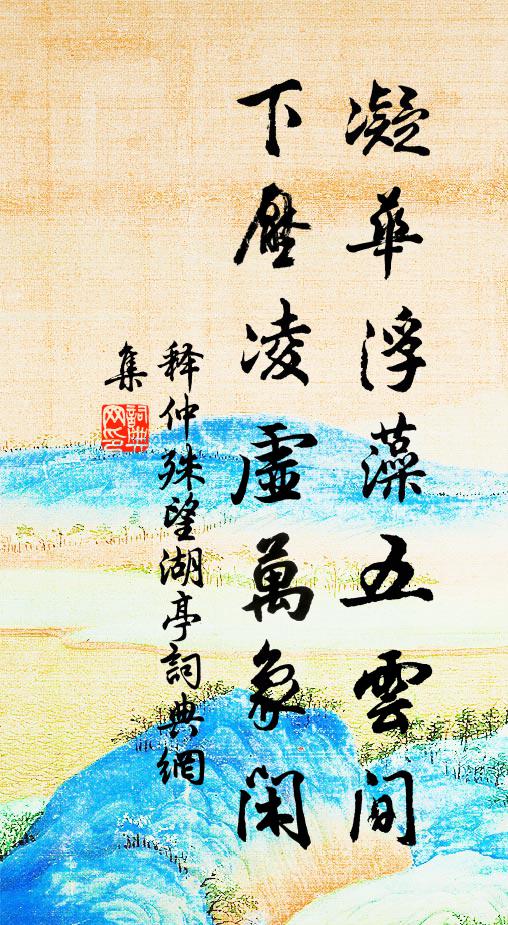 凝華浮藻五雲間
下壓凌虛萬象閑
释仲殊望湖亭詞典網
集
詞典網印